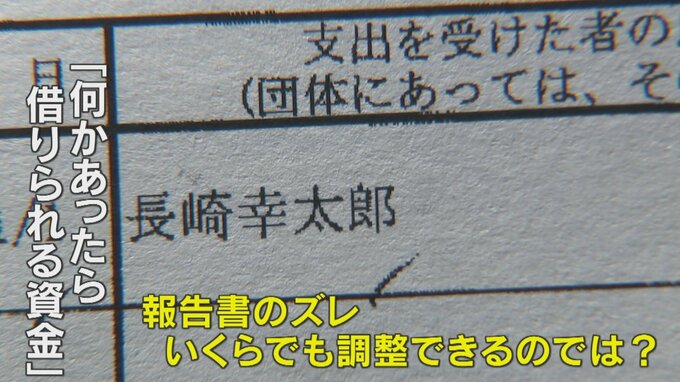 支出を受けた者の
月
(団体にあっては、そ
長崎幸太郎
「何かあったら
借りられる資金」
報告書のズレ
いくらでも調整できるのでは？